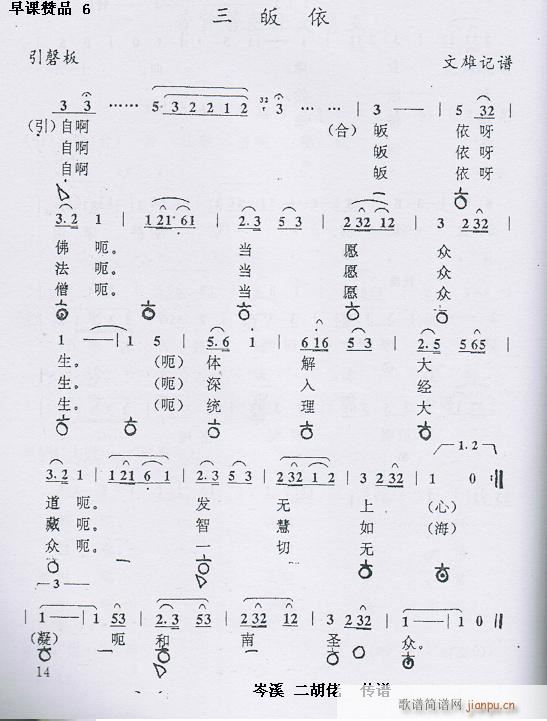 早课赞品 6
三皈依
引磬板
文雄记谱
3 3 ······ 5 3 2 2 1 2 3 ······ | 3 — | 5 32 |
(引) 自啊 (合) 皈 依呀
自啊 皈 依呀
自啊 皈 依呀
3.2 1 | 1 21 61 | 2.3 5 3 | 2 32 12 | 3 2 32 |
佛呃。 当 愿 众
法呃。 当 愿 众
僧呃。 当 愿 众
1 — | 1 5 | 5.6 1 | 6 16 5 3 | 2.5 5 65 |
生。 (呃) 体 解 大
生。 (呃) 深 入 经
生。 (呃) 统 理 大
1.2
3.2 1 | 1 21 6 1 | 2.3 5 3 | 2 32 1 2 | 3 2 32 | 1 0 :||
道呃。 发 无 上 (心)
藏呃。 智 慧 如 (海)
众呃。 一 切 无
3
1 — 1 53 | 2.3 53 | 2 32 1 2 | 3 2 32 | 1 — | 1 0 ||
(凝) 呃 和 南 圣 众。
14
岑溪 二胡佬 传谱
歌谱简谱网
jianpu.cn